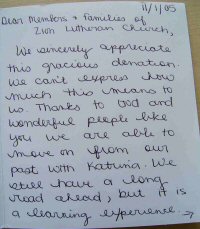 11/1/05
Dear Members + Families of
Zion Lutheran Church,
We sincerely appreciate
this gracious donation.
We can't express how
much this means to
us. Thanks to God and
wonderful people like
you we are able to
move on from our
past with Katrina. We
still have a long
road ahead, but it is
a learning experience. →